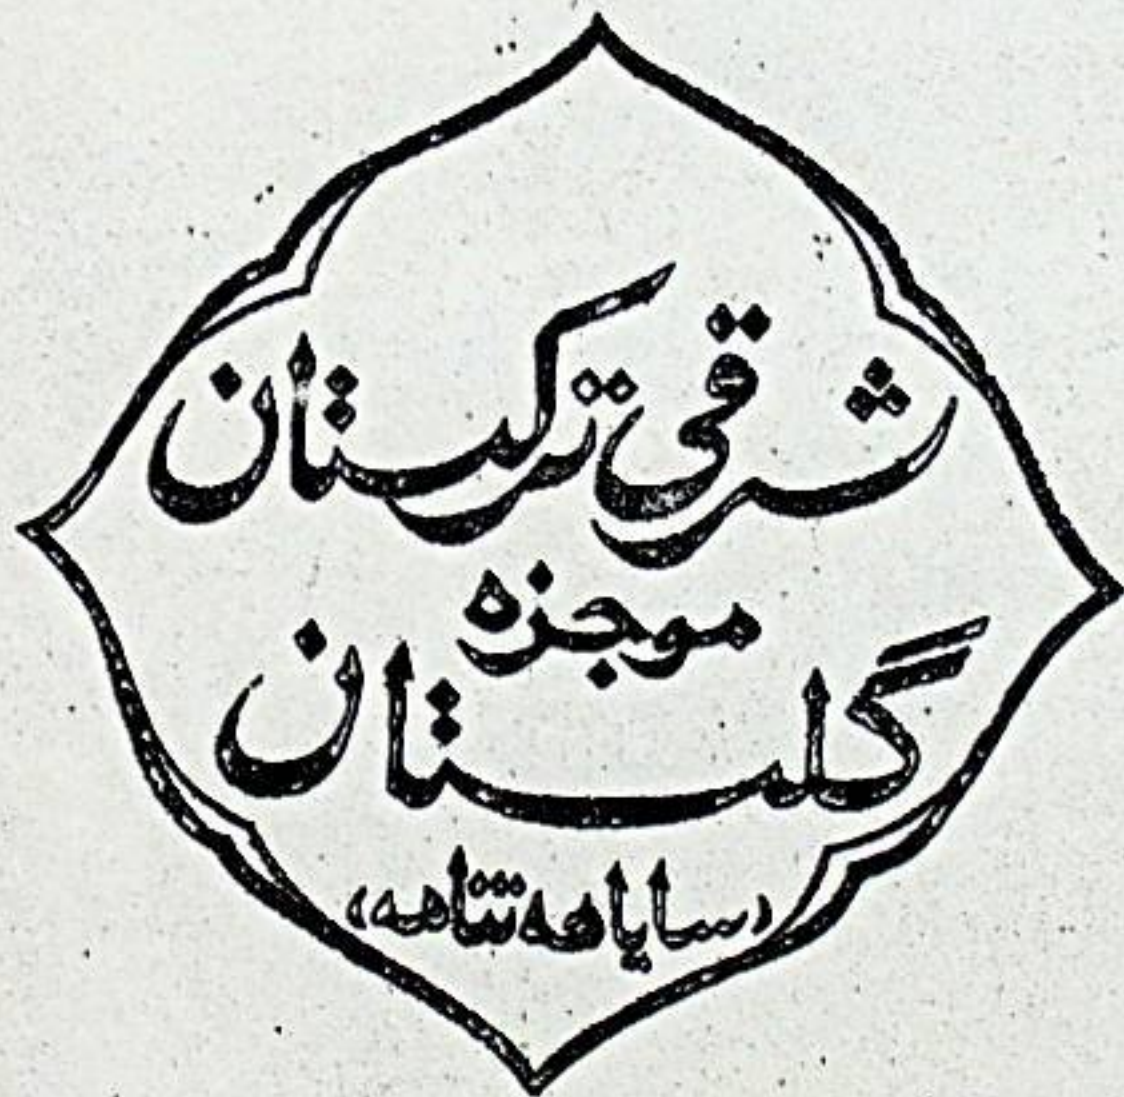 شرقی ترکستان
موجزه
گلستان
(ساياھەتنامە)